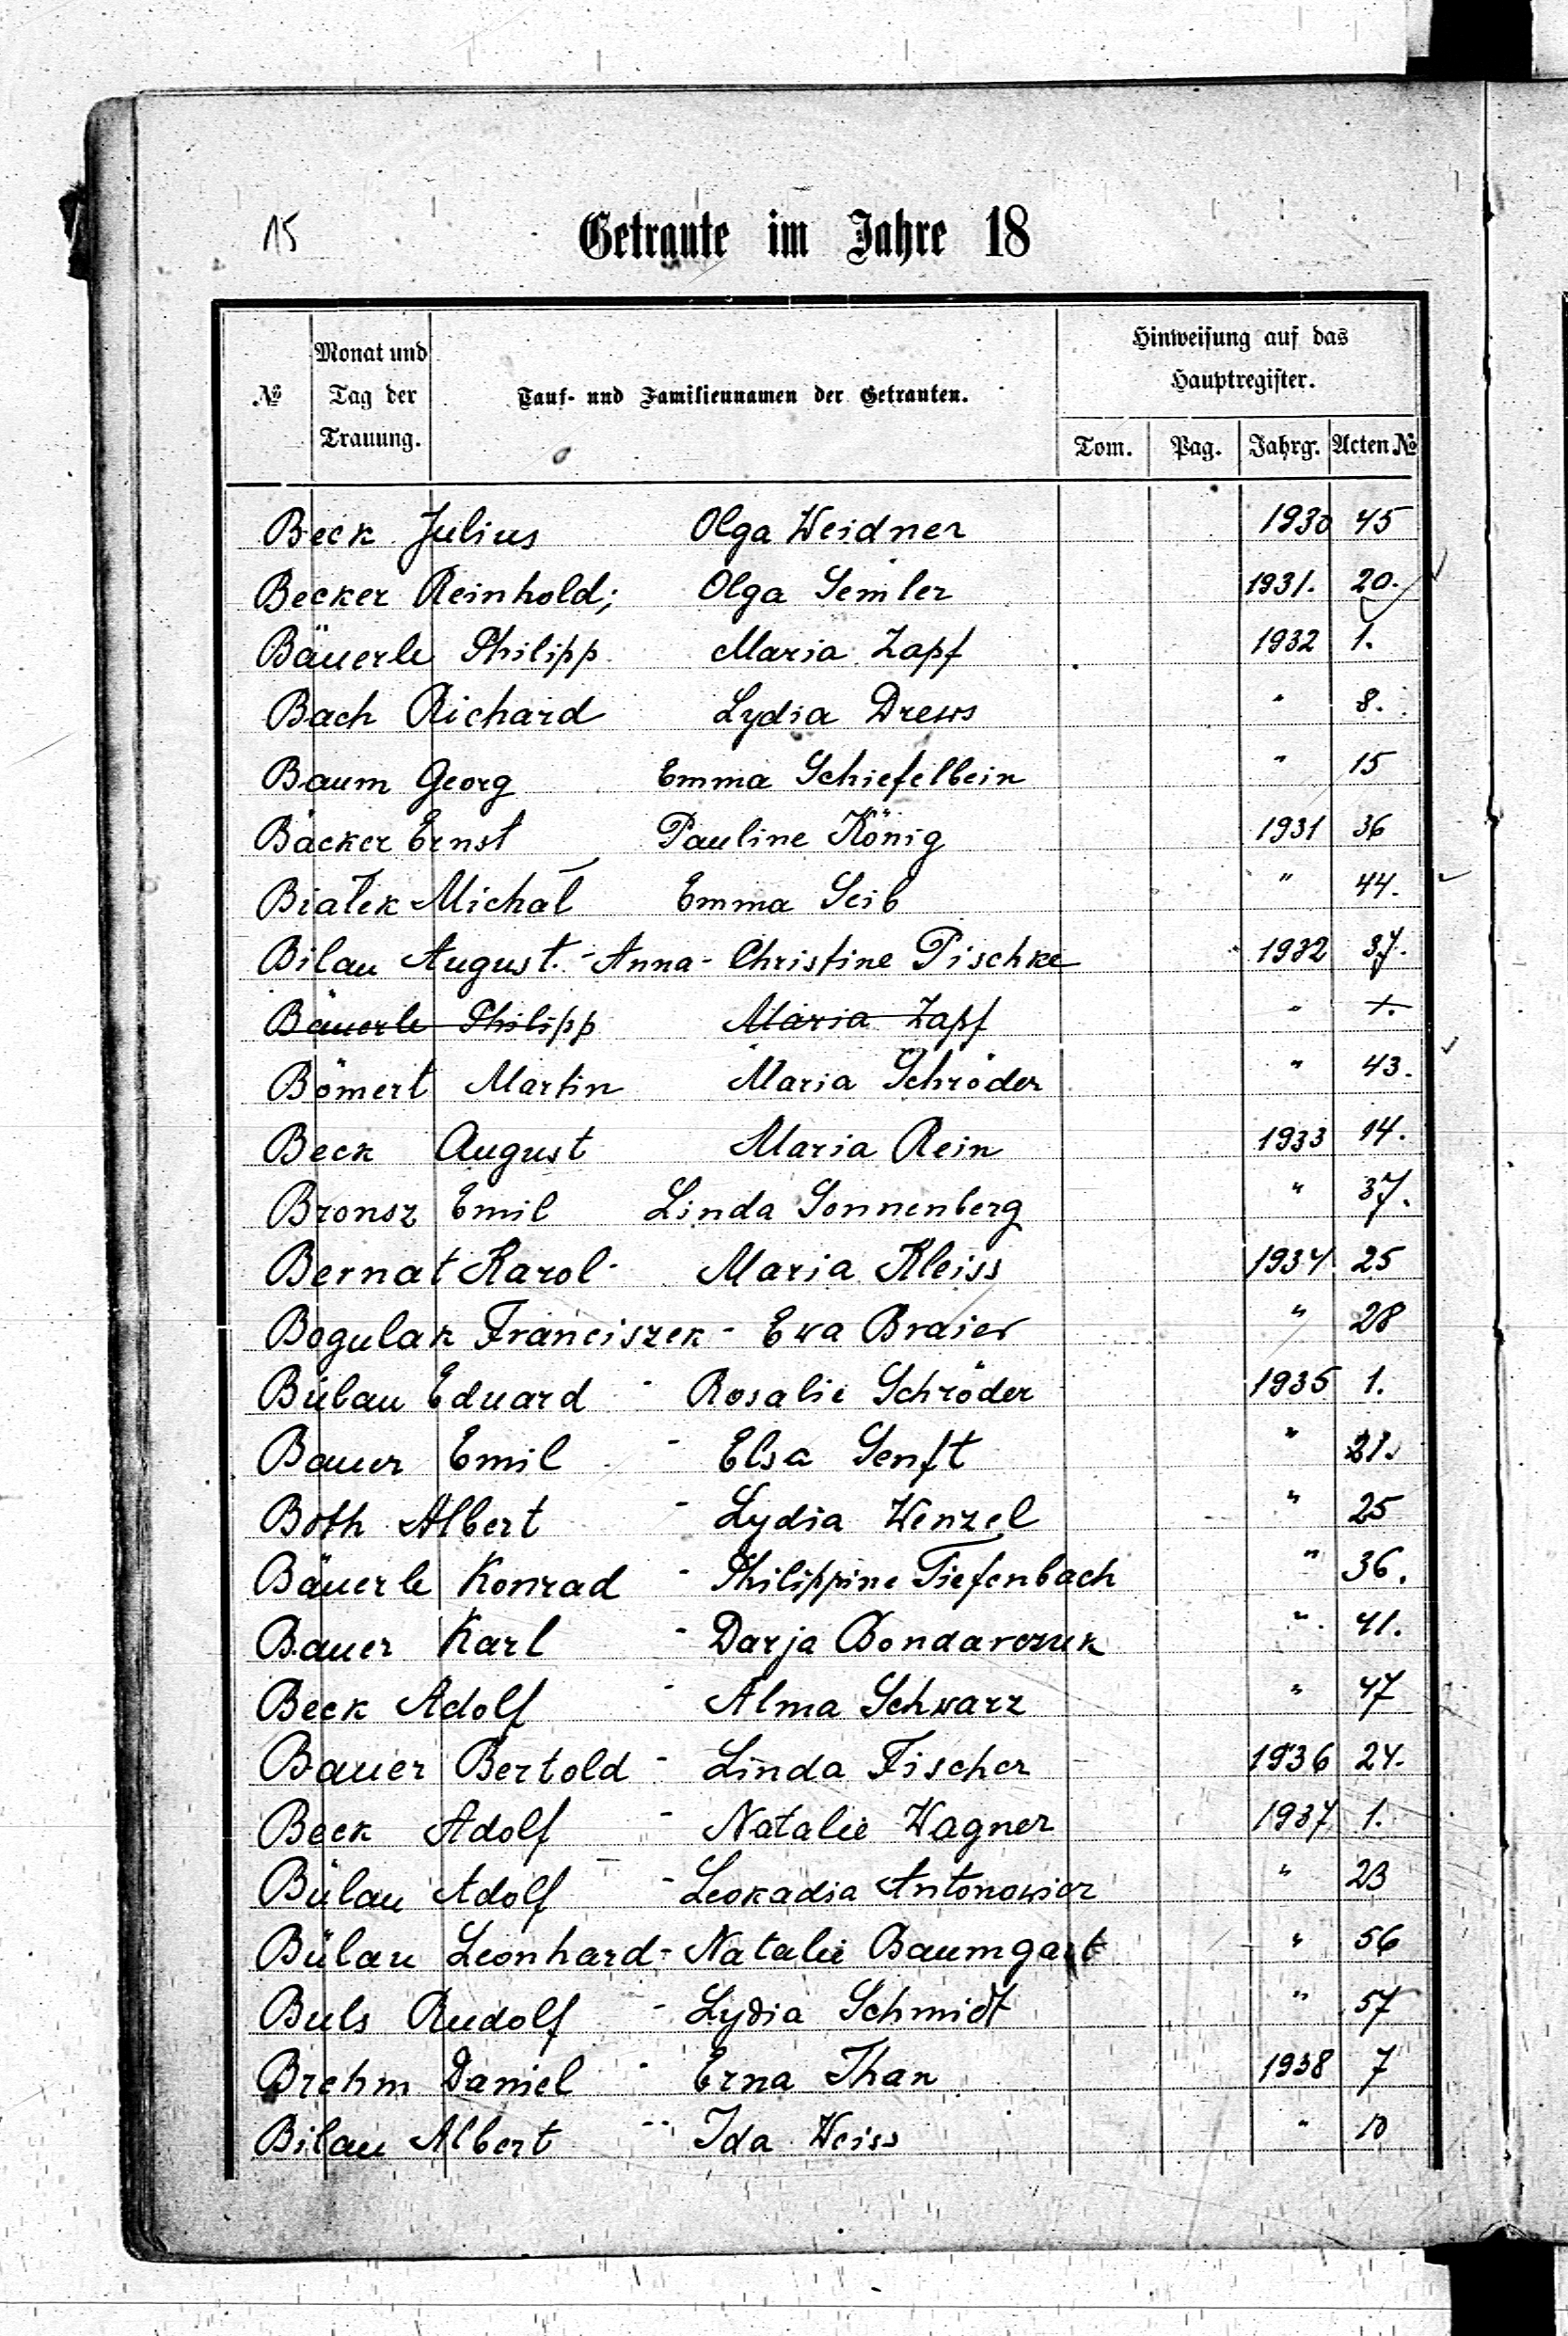 15
Getraute im Jahre 18
№ Monat und Tag der Trauung. Tauf- und Familiennamen der Getrauten. Hinweisung auf das Hauptregister.
Tom. Pag. Jahrg. Acten №
Beck Julius Olga Weidner 1930 45
Becker Reinhold; Olga Semler 1931. 20.
Bäuerle Philipp Maria Zapf 1932 1.
Bach Richard Lydia Drews " 8.
Baum Georg Emma Schiefelbein " 15
Bäcker Ernst Pauline König 1931 36
Białek Michał Emma Seib " 44.
Bilau August. - Anna - Christine Pischke 1932 37.
Bäuerle Philipp Maria Zapf " 1.
Bömert Martin Maria Schröder " 43.
Beck August Maria Rein 1933 14.
Bronsz Emil Linda Sonnenberg " 37.
Bernat Karol - Maria Kleiss 1934 25
Bogulak Franciszek - Ewa Braier " 28
Bülau Eduard - Rosalie Schröder 1935 1.
Bauer Emil - Elsa Senft " 21.
Both Albert - Lydia Wenzel " 25
Bäuerle Konrad - Philippine Tiefenbach " 36.
Bauer Karl - Darja Bondarczuk " 41.
Beck Adolf - Alma Schwarz " 47
Bauer Bertold - Linda Fischer 1936 24.
Beck Adolf - Natalie Wagner 1937 1.
Bülau Adolf - Leokadia Antonowicz " 23
Bülau Leonhard - Natalie Baumgart " 56
Buls Rudolf - Lydia Schmidt " 57
Brehm Daniel - Erna Than 1938 7
Bilau Albert - Ida Weiss " 10